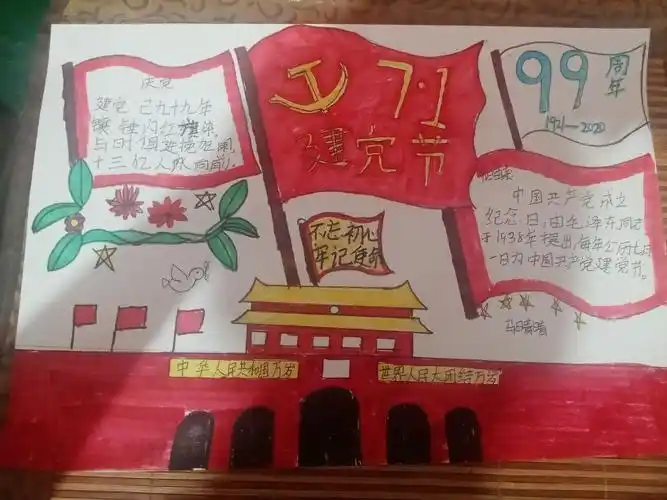 庆党
建党已九十年
镰锤闪红旗染
与时俱进换旭阳
十三亿人跃向前
7.1
建党节
99
周年
1921—2020
不忘初心
牢记使命
中国共产党成立
纪念日,由毛泽东同志
于1938年提出,每年公历七月
一日为中国共产党建党节。
中华人民共和国万岁
世界人民大团结万岁